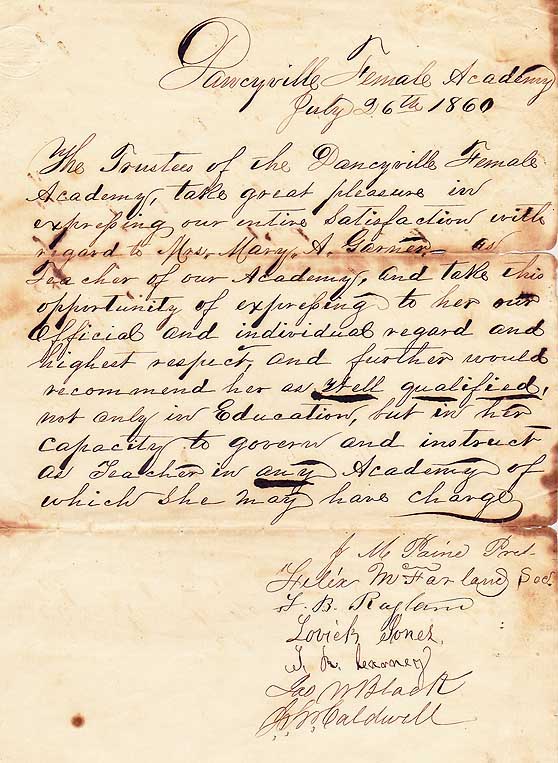 Dancyville Female Academy
July 26th 1860
The Trustees of the Dancyville Female
Academy, take great pleasure in
expressing our entire Satisfaction with
regard to Mrs. Mary. A. Garner as
Teacher of our Academy, and take this
opportunity of expressing to her our
Official and individual regard and
highest respect, and further would
recommend her as Well qualified,
not only in Education, but in her
Capacity to govern and instruct
as Teacher in any Academy of
which She may have charge
J M Paine Pret.
Felix McFarland Sec.
B. Ragland
Lovick Jones
Jas W Black
Caldwell